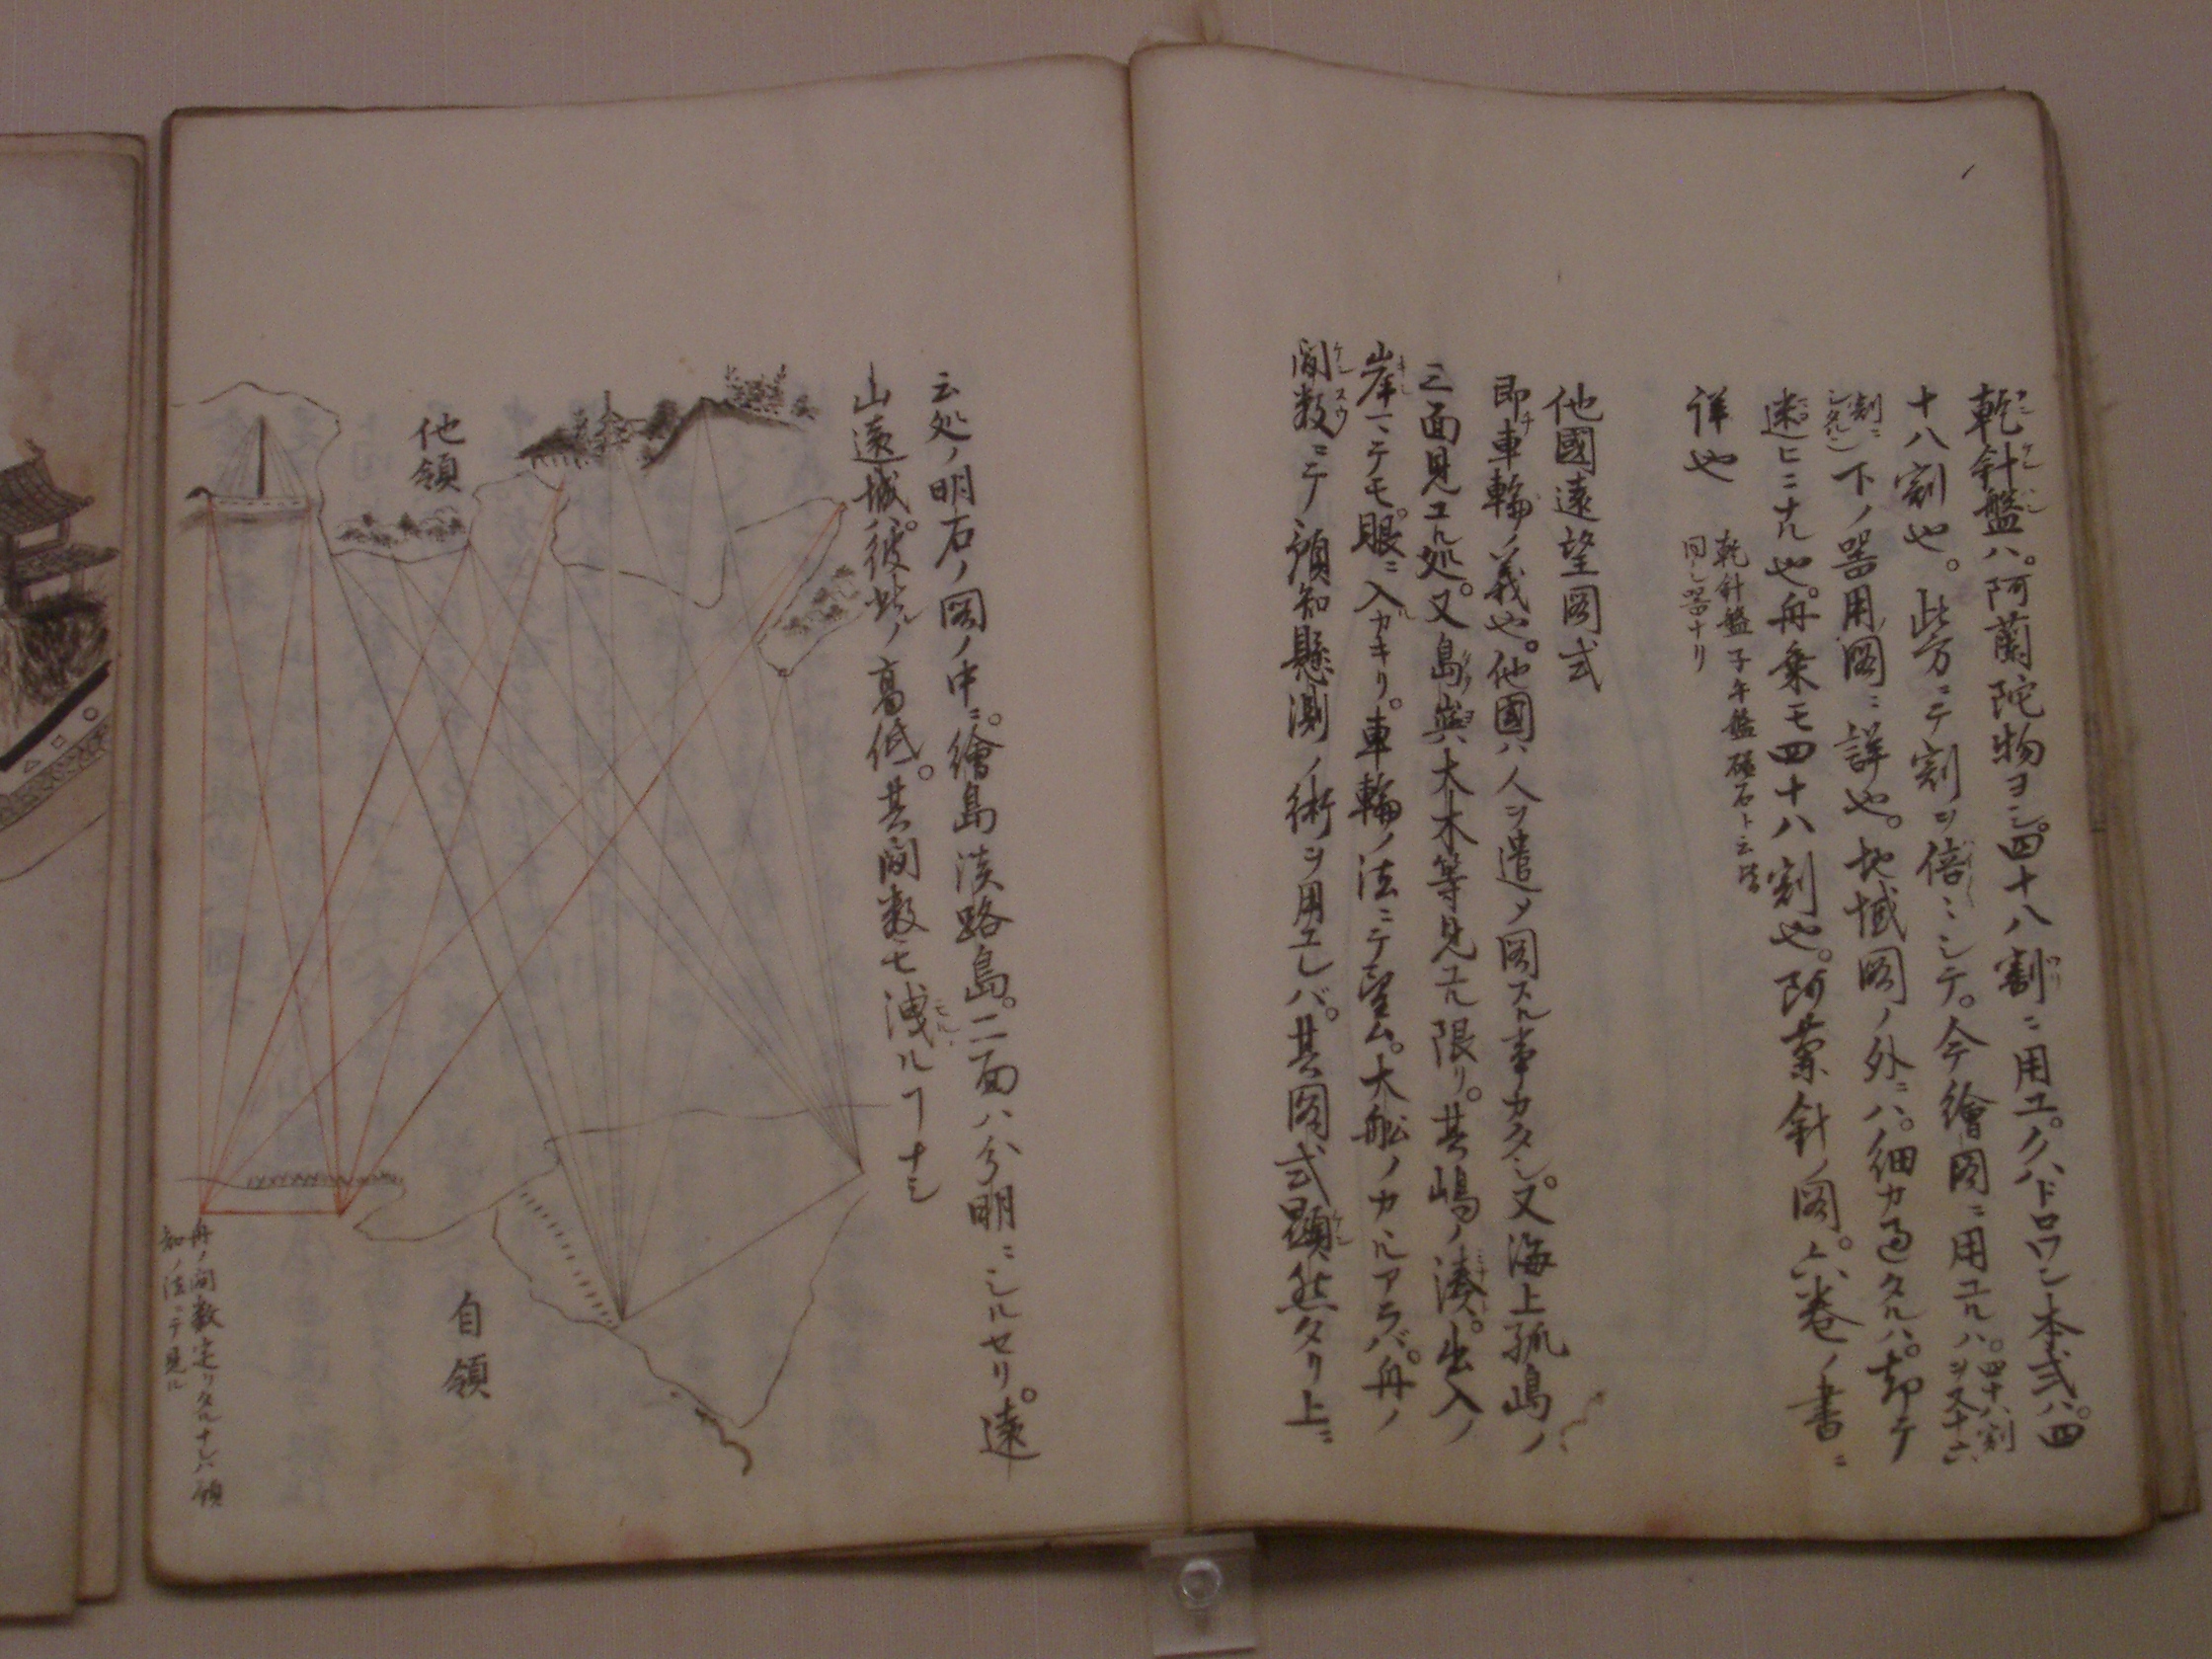 乾針盤ハ。阿蘭陀物ヨシ。四十八割ニ用ユ。クハドロワン本式ハ。四
十八割也。此方ニテ割ヲ倍ニシテ。今繪圖ニ用ユルハ。四十八割ヲ又十六
割ニシタル 下ノ器用圖ニ詳也。地域圖ノ外ニハ。細カ過タルハ。却テ
迷ヒニナル也。舟乗モ四十八割也。阿蘭針ノ圖。六巻ノ書ニ
詳也
乾針盤子午盤磁石ト云皆
同シ器ナリ
他國遠望圖式
即車輪ノ義也。他國ハ人ヲ遣メ圖スル事カタシ。又海上孤嶋ノ
三面見ユル処。又島與大木等見ユル限リ。其嶋ノ湊。出入ノ
岸ニテモ。眼ニ入カキリ。車輪ノ法ニテ望ム。大舩ノカヽルアラバ。舟ノ
間数ニテ預知懸測ノ術ヲ用ユレバ。其圖式顕然タリ上ニ
云処ノ明石ノ圖ノ中ニ。繪島淡路島。二面ハ分明ニシルセリ。遠
山遠城。彼此ノ高低。其間数モ洩ルヿナシ
他領
自領
舟ノ間数定リタルナレバ預
知ノ法ニテ見ル